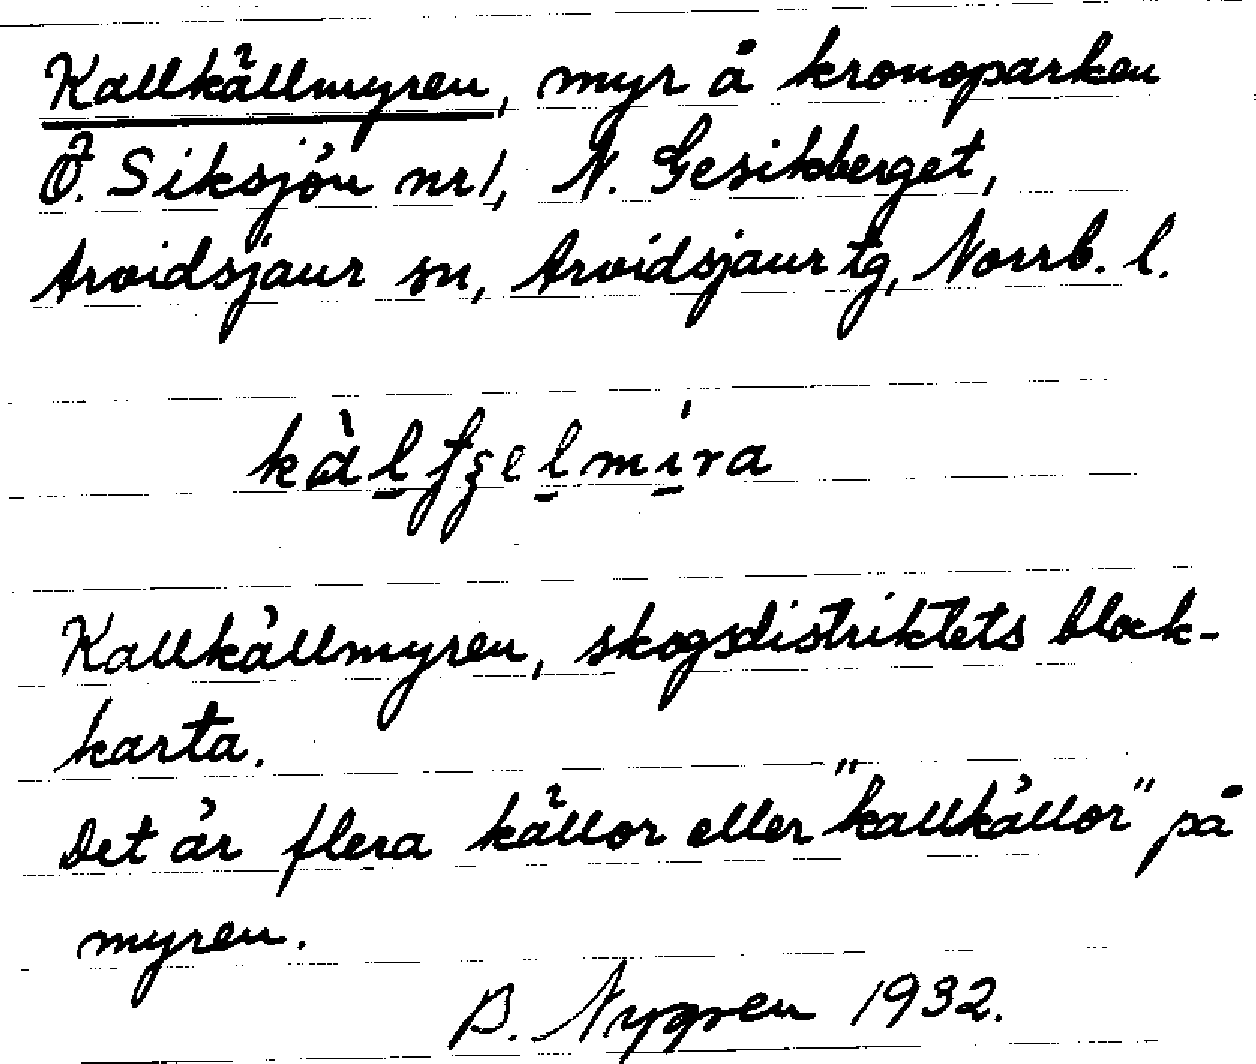 Kallkällmyren, myr å kronoparken
Ö. Siksjön nr 1, N. Gesikberget,
Arvidsjaur sn, Arvidsjaur tg, Norrb. l.
Kallkällmyren, skogsdistriktets block-
karta.
Det är flera källor eller "kallkällor" på
myren.
B. Nygren 1932.